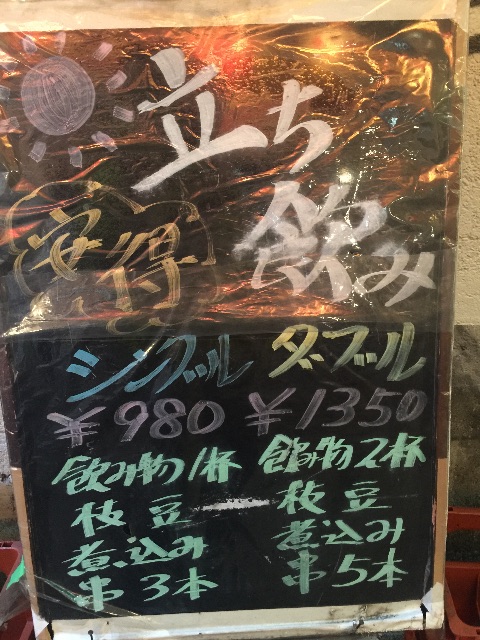 立ち
飲み
安得
シングル ダブル
¥980 ¥1350
飲み物1杯 飲み物2杯
枝豆 枝豆
煮込み 煮込み
串3本 串5本